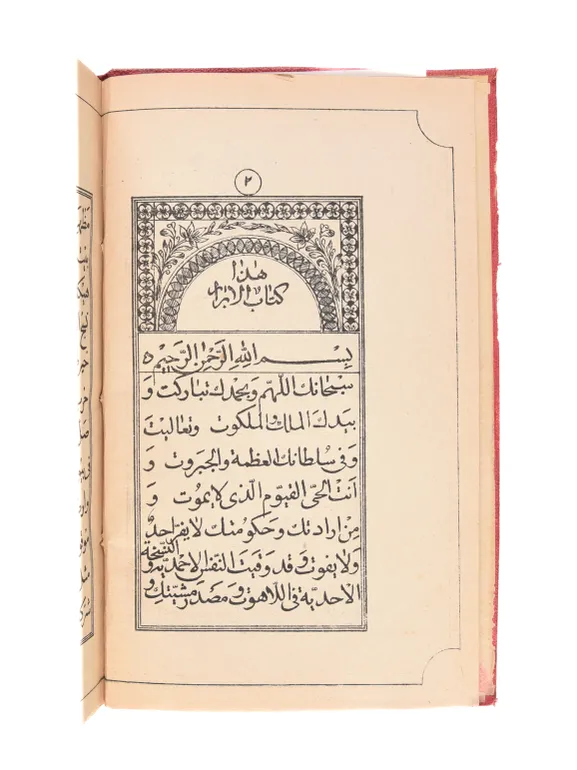 ٢
هذا
كتاب الابرار
بسم الله الرحمن الرحيم
سبحانك اللهم وبحمدك تباركت و
بيدك الملك والملكوت وتعاليت
وفى سلطانك العظمة والجبروت و
انت الحى القيوم الذى لايموت و
من ارادتك وحكومتك لايفر احد
ولايفوت وقد وقيت النفس الاحمدية و
الاحدية فى اللاهوت ومصدر مشيتك و